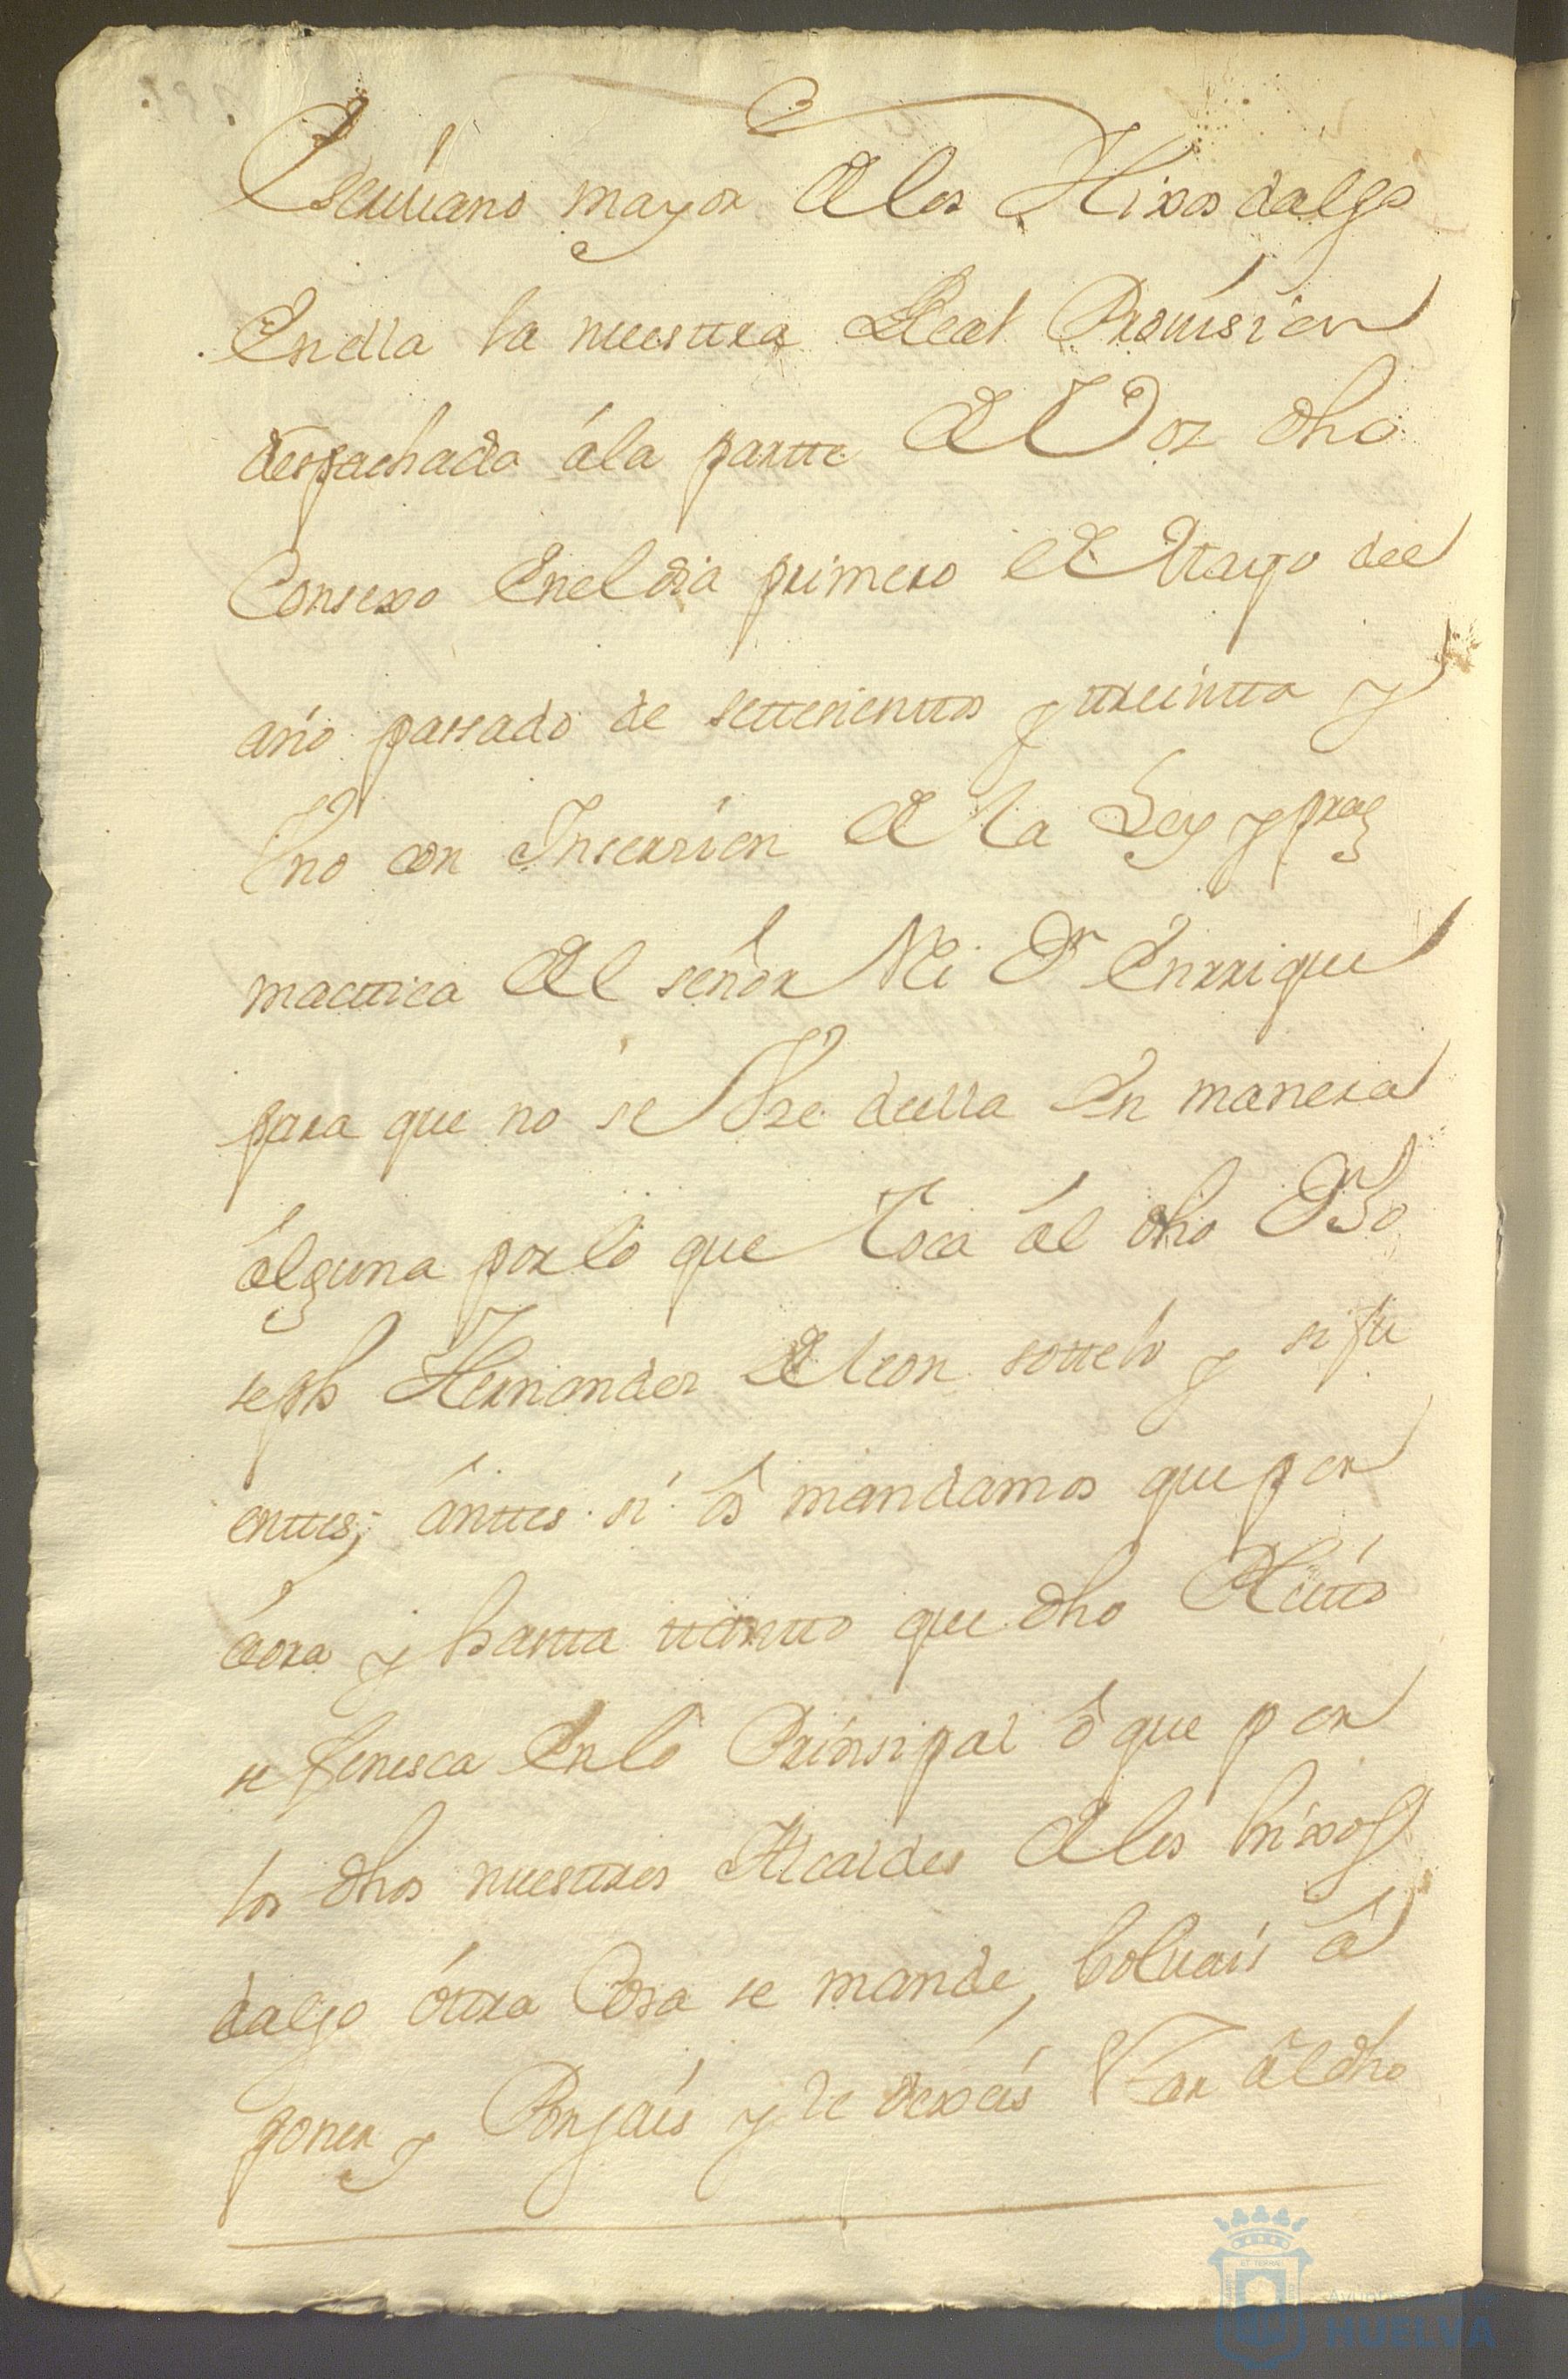 Escriuano mayor de los Hixos dalgo
En ella la nuesttra Real Prouision
despachada á la partte de Vos dho
Consexo En el dia primero de Mayo del
año passado de settesienttos y ttreintta y
Vno con Inserzion de la Ley y prag
mattica del señor Rei Dn Enrrique
para que no se Vse della En manera
álguna por lo que Toca ál dho Dn Jo
seph Hernandez de leon sottelo y sus pari
enttes; ánttes si ós mandamos que por
áora y hastta ttantto que dho Pleitto
se fenesca En lo Prinsipal ó que por
los dhos nuesttros Alcaldes de los hixos
dalgo óttra Cosa se mande, bolvais á
poner y Pongais y le dexéis Vsar ál dho
HUELVA